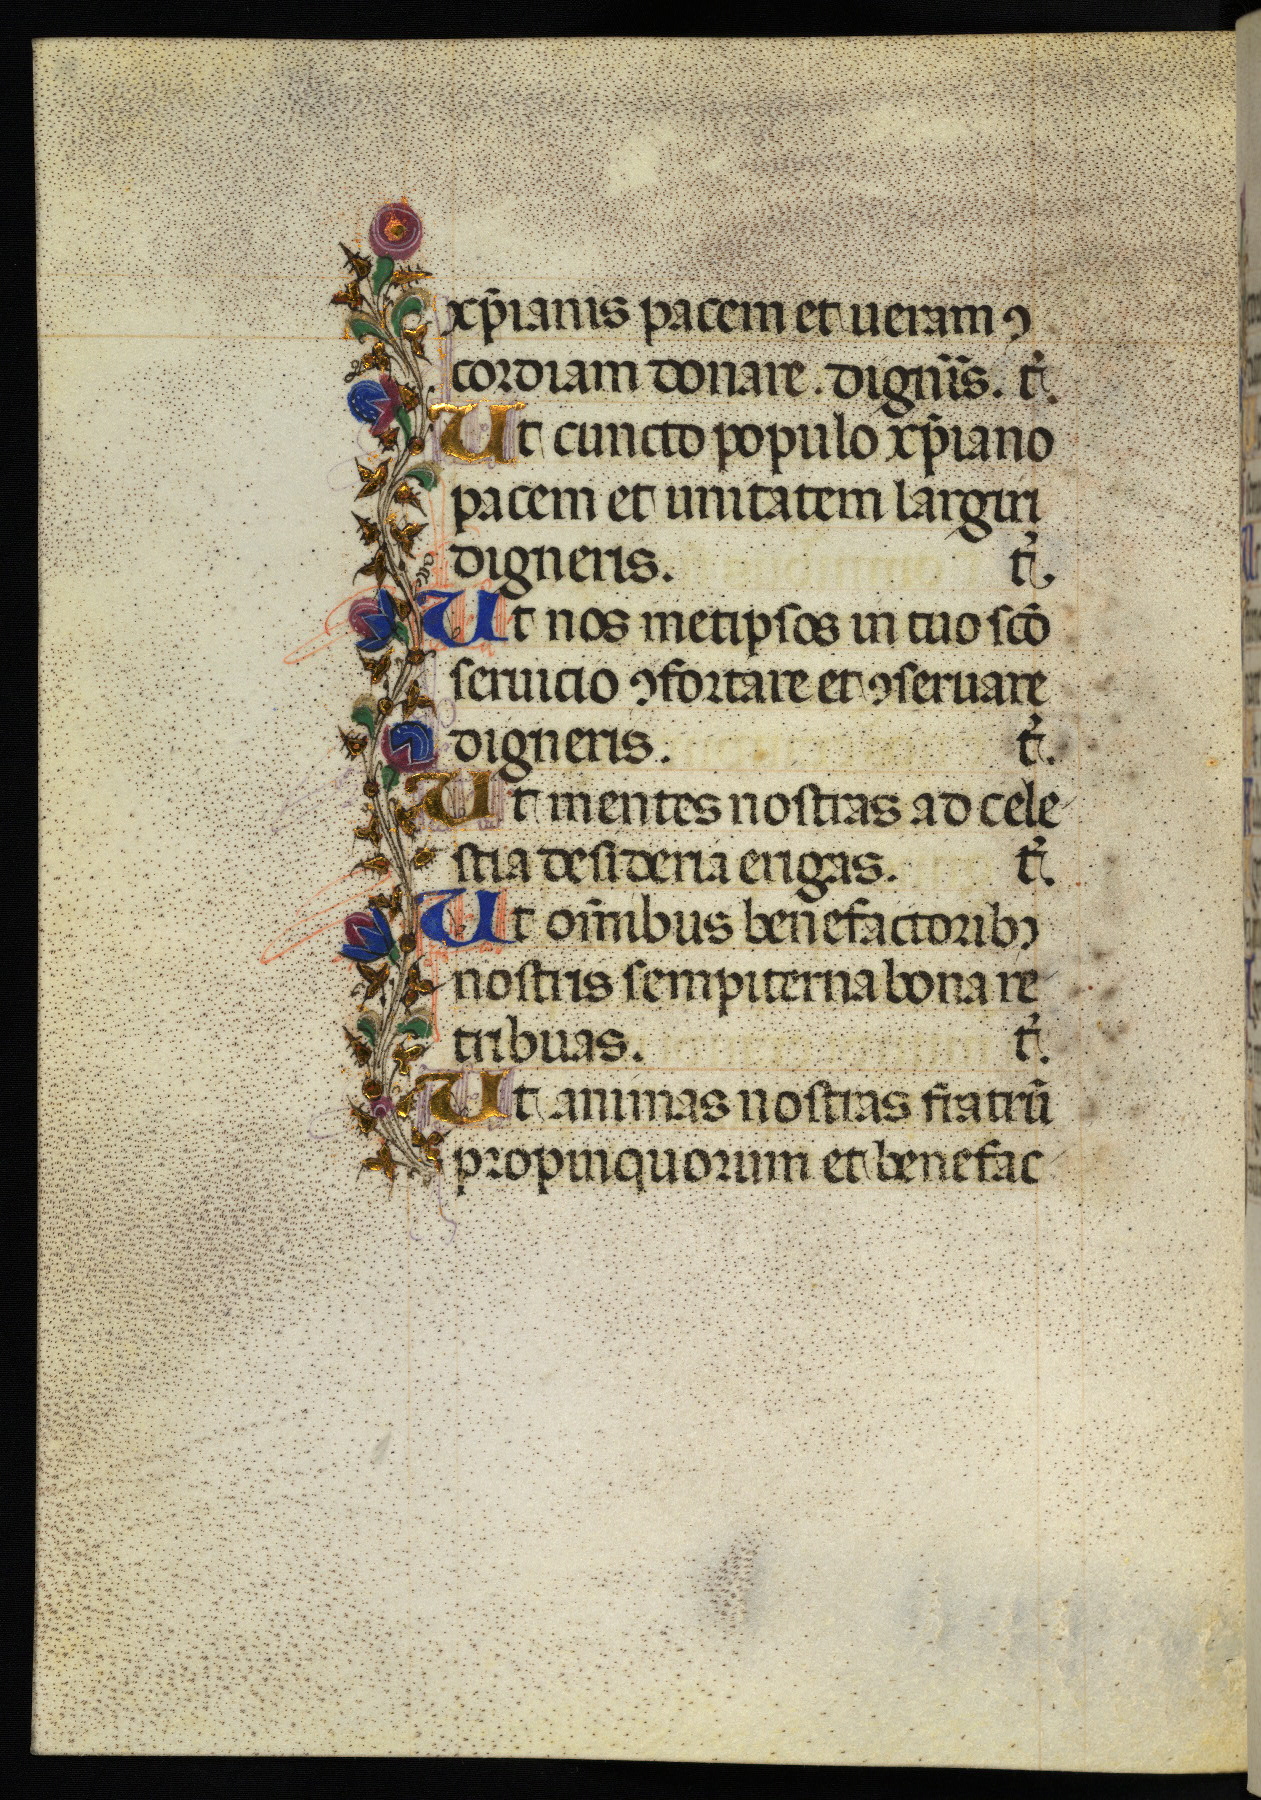 xp̄ianis pacem et ueram ꝯ
cordiam donare. dignr̄is. t̄.
Ut cuncto populo xp̄iano
pacem et unitatem largiri
digneris. t̄.
Ut nos metipsos in tuo scō
seruicio ꝯfortare et ꝯseruare
digneris. t̄.
Ut mentes nostras ad cele
stia desideria erigas. t̄.
Ut om̄ibus benefactoribꝫ
nostris sempiterna bona re
tribuas. t̄.
Ut animas nostras fratrū
propinquorum et benefac